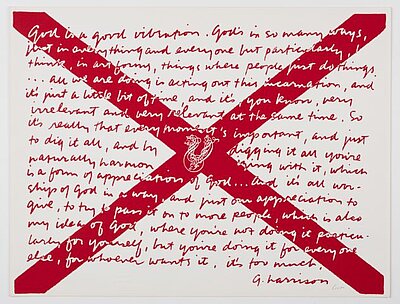 God is a good vibration. God's in so many ways,
just in everything and everyone but particularly, I
think, in art forms, things where people just do things.
... all we are doing is acting out this incarnation, and
it's just a little bit of time, and it's, you know, very
irrelevant and very relevant at the same time. So
it's really that every moment's important, and just
to dig it all, and by digging it all you're
naturally harmon ing with it, which
is a form of appreciation of God... and it's all wor-
ship of God in a way, and just our appreciation to
give, to try to pass it on to more people, which is also
my idea of God, where you're not doing it particu-
larly for yourself, but you're doing it for everyone
else, for whoever wants it, it's too much.
G. Harrison